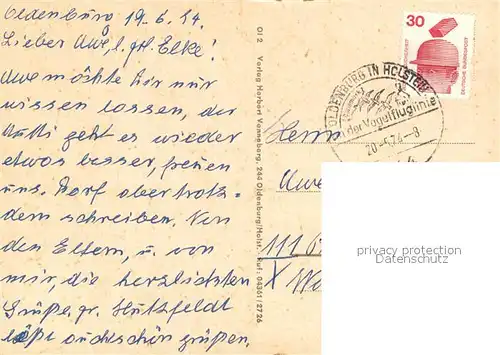 Oldenburg 19.6.74.
Lieber Uwe, l. gr. Elke!
Uwe möchte Dir nur
wissen lassen, der
Mutti geht es wieder
etwas besser, freuen
uns. Darf aber trotz-
dem schreiben. Von
den Eltern, u. von
mir, die herzlichsten
Grüße, gr. Hützfeldt
läßt auch schön grüßen.
OI 2 Verlag Herbert Vanneberg, 244 Oldenburg/Holst. Ruf: 04361/2726
30
DEUTSCHE BUNDESPOST
OLDENBURG IN HOLSTEIN
der Vogelfluglinie
20.-6.74.-8
Herrn
Uwe
111
X
privacy protection
Datenschutz